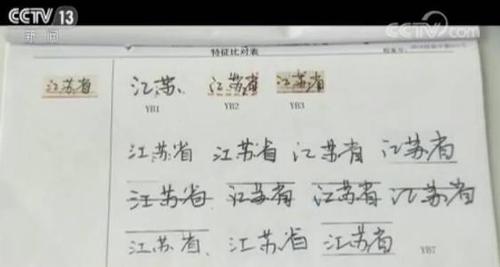 CCTV 13
新闻
CCTV.com
特征比对表
江苏省 江苏 江苏省 江苏省
YB1 YB2 YB3
江苏省 江苏省 江苏省 江苏省
江苏省 江苏省 江苏省 江苏省
江苏省 江苏省 江苏省
YB7